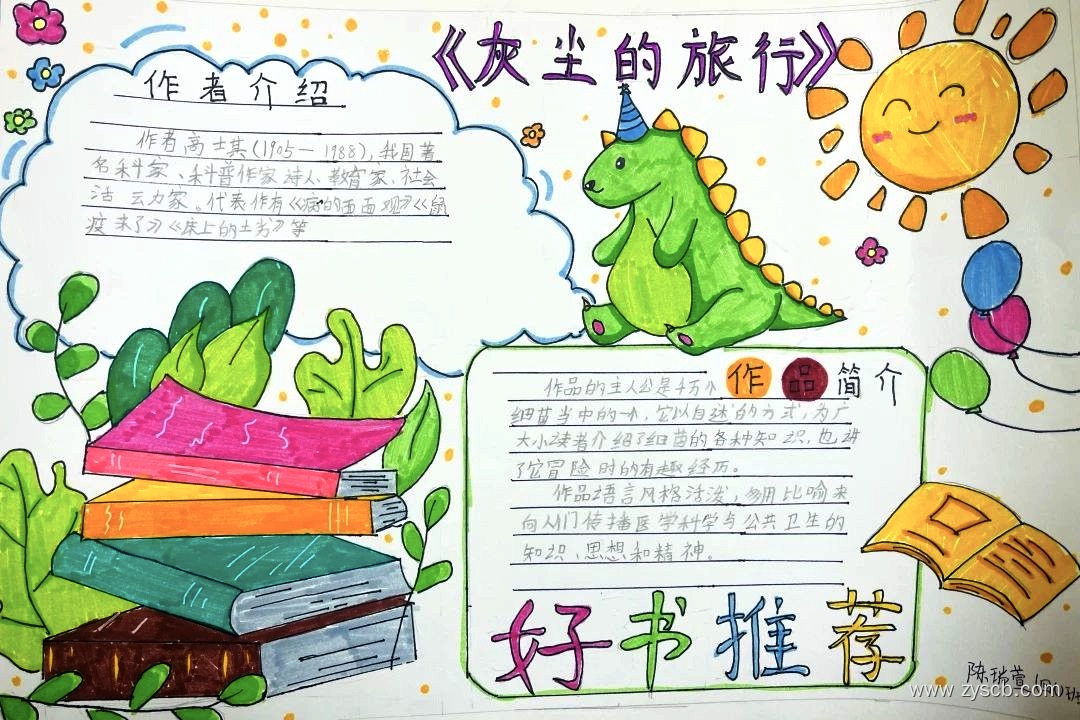 《灰尘的旅行》
作者介绍
作者高士其(1905—1988),我国著
名科学家、科普作家诗人、教育家、社会
活动家。代表作有《菌的面面观》《鼠
疫来了》《床上的土劣》等
作品简介
作品的主人公是千万个
细菌当中的一个,它以自述的方式,为广
大小读者介绍了细菌的各种知识,也讲
了它冒险时的有趣经历。
作品语言风格活泼,多用比喻来
向人们传播医学科学与公共卫生的
知识、思想和精神。
好书推荐
陈瑞萱
www.zyscb.com